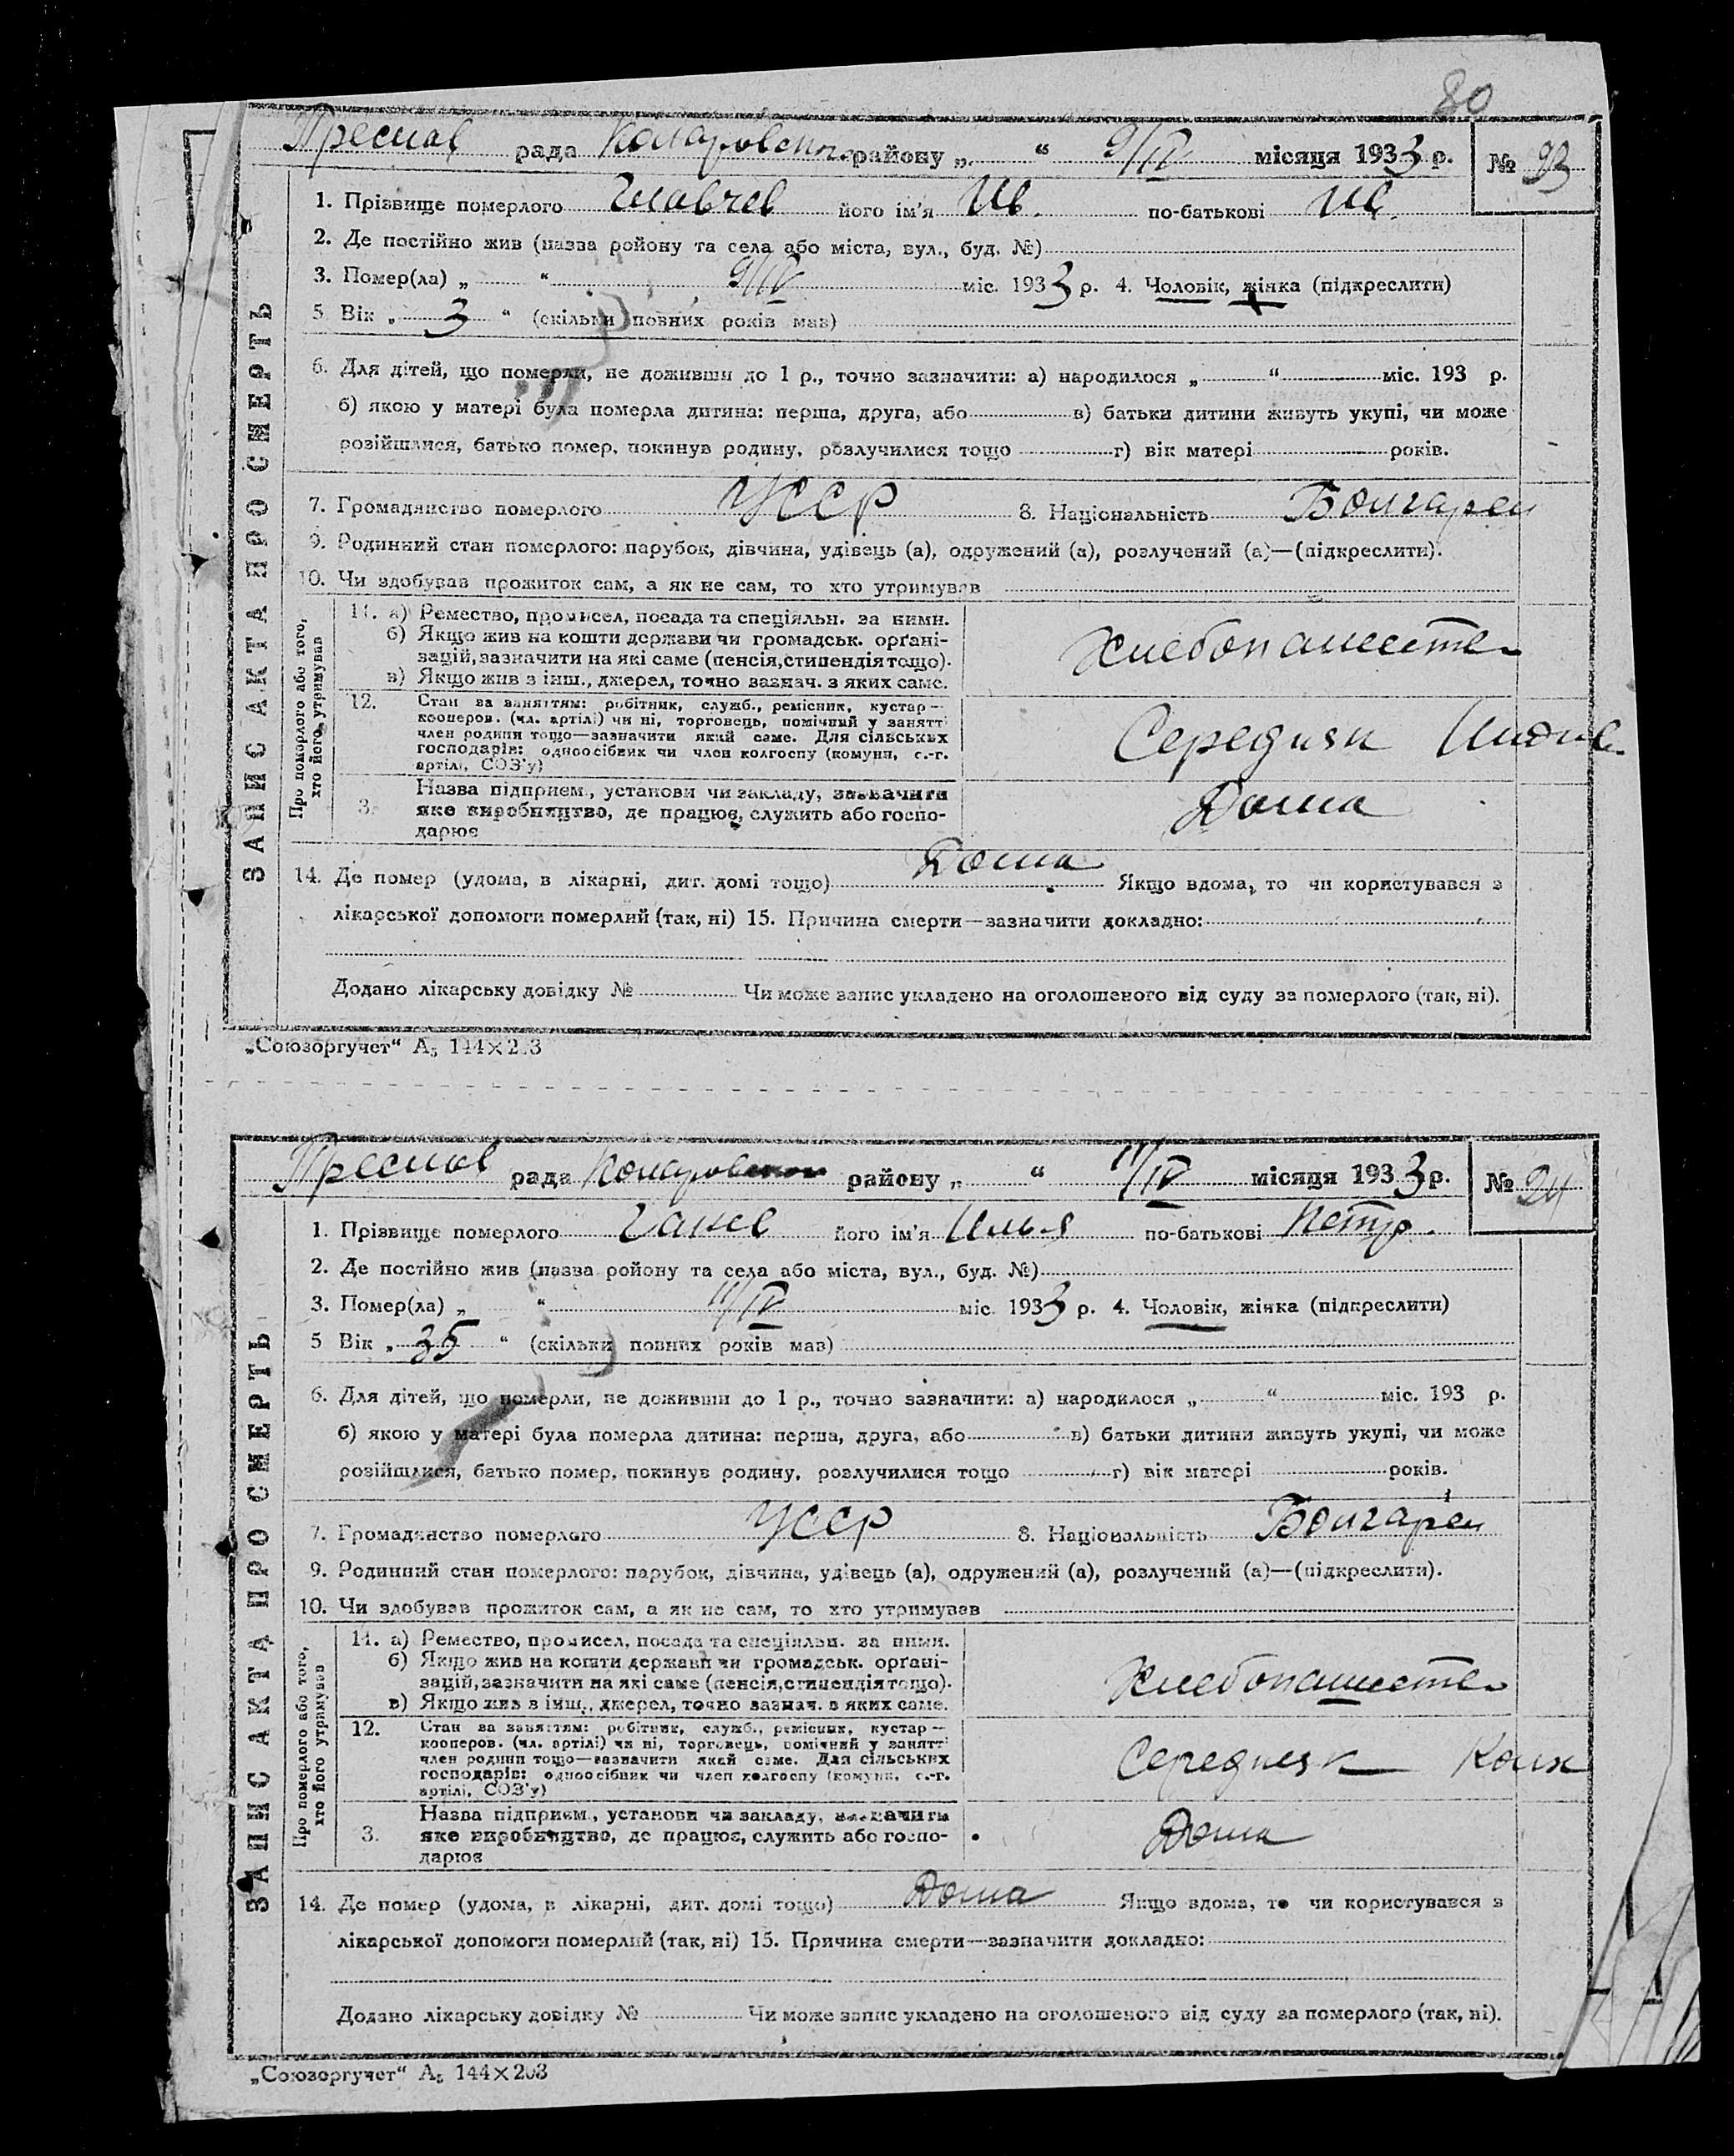 80
Преслав рада Коларовског району „ “ 9/IV місяця 1933 р. № 93
1. Прізвище померлого Главчев його ім'я Ив. по-батькові Ив.
2. Де постійно жив (назва ройону та села або міста, вул., буд. №)
3. Помер(ла) „ “ 9/IV міс. 1933 р. 4. Чоловік, жінка (підкреслити)
5 Вік „ 3 “ (скільки повних років мав)
6. Для дітей, що померли, не доживши до 1 р., точно зазначити: а) народилося „ “ міс. 193 р.
б) якою у матері була померла дитина: перша, друга, або в) батьки дитини живуть укупі, чи може
розійшлися, батько помер, покинув родину, розлучилися тощо г) вік матері років.
7. Громадянство померлого УССР 8. Національність Болгарен
9. Родинний стан померлого: парубок, дівчина, удівець (а), одружений (а), розлучений (а)—(підкреслити).
10. Чи здобував прожиток сам, а як не сам, то хто утримував
ЗАПИС АКТА ПРО СМЕРТЬ
Про померлого або того, хто його утримував
11. а) Ремество, промисел, посада та спеціяльн. за ними.
б) Якщо жив на кошти держави чи громадськ. орґані-
зацій, зазначити на які саме (пенсія, стипендія тощо).
в) Якщо жив з інш., джерел, точно зазнач. з яких саме.
Хлебопашеств
12. Стан за заняттям: робітник, служб., ремісник, кустар—
кооперов. (чл. артілі) чи ні, торговець, помічний у занятті
член родини тощо—зазначити який саме. Для сільських
господарів: одноосібник чи член колгоспу (комуни, с.-г.
артілі, СОЗ'у)
Середняк
3. Назва підприєм., установи чи закладу, зазначити
яке виробництво, де працює, служить або госпо-
дарює
Дома
14. Де помер (удома, в лікарні, дит. домі тощо) Дома Якщо вдома, то чи користувався з
лікарської допомоги померлий (так, ні) 15. Причина смерти—зазначити докладно:
Додано лікарську довідку № Чи може запис укладено на оголошеного від суду за померлого (так, ні).
„Союзоргучет“ А5 144×203
Преслав рада Коларовског району „ “ 11/IV місяця 1933 р. № 94
1. Прізвище померлого Ганев його ім'я Илья по-батькові Петр.
2. Де постійно жив (назва ройону та села або міста, вул., буд. №)
3. Помер(ла) „ “ 11/IV міс. 1933 р. 4. Чоловік, жінка (підкреслити)
5 Вік „ 35 “ (скільки повних років мав)
6. Для дітей, що померли, не доживши до 1 р., точно зазначити: а) народилося „ “ міс. 193 р.
б) якою у матері була померла дитина: перша, друга, або в) батьки дитини живуть укупі, чи може
розійшлися, батько помер, покинув родину, розлучилися тощо г) вік матері років.
7. Громадянство померлого УССР 8. Національність Болгарен
9. Родинний стан померлого: парубок, дівчина, удівець (а), одружений (а), розлучений (а)—(підкреслити).
10. Чи здобував прожиток сам, а як не сам, то хто утримував
ЗАПИС АКТА ПРО СМЕРТЬ
Про померлого або того, хто його утримував
11. а) Ремество, промисел, посада та спеціяльн. за ними.
б) Якщо жив на кошти держави чи громадськ. орґані-
зацій, зазначити на які саме (пенсія, стипендія тощо).
в) Якщо жив з інш., джерел, точно зазнач. з яких саме.
Хлебопашеств
12. Стан за заняттям: робітник, служб., ремісник, кустар—
кооперов. (чл. артілі) чи ні, торговець, помічний у занятті
член родини тощо—зазначити який саме. Для сільських
господарів: одноосібник чи член колгоспу (комуни, с.-г.
артілі, СОЗ'у)
Середняк Колх
3. Назва підприєм., установи чи закладу, зазначити
яке виробництво, де працює, служить або госпо-
дарює
Дома
14. Де помер (удома, в лікарні, дит. домі тощо) Дома Якщо вдома, то чи користувався з
лікарської допомоги померлий (так, ні) 15. Причина смерти—зазначити докладно:
Додано лікарську довідку № Чи може запис укладено на оголошеного від суду за померлого (так, ні).
„Союзоргучет“ А5 144×203